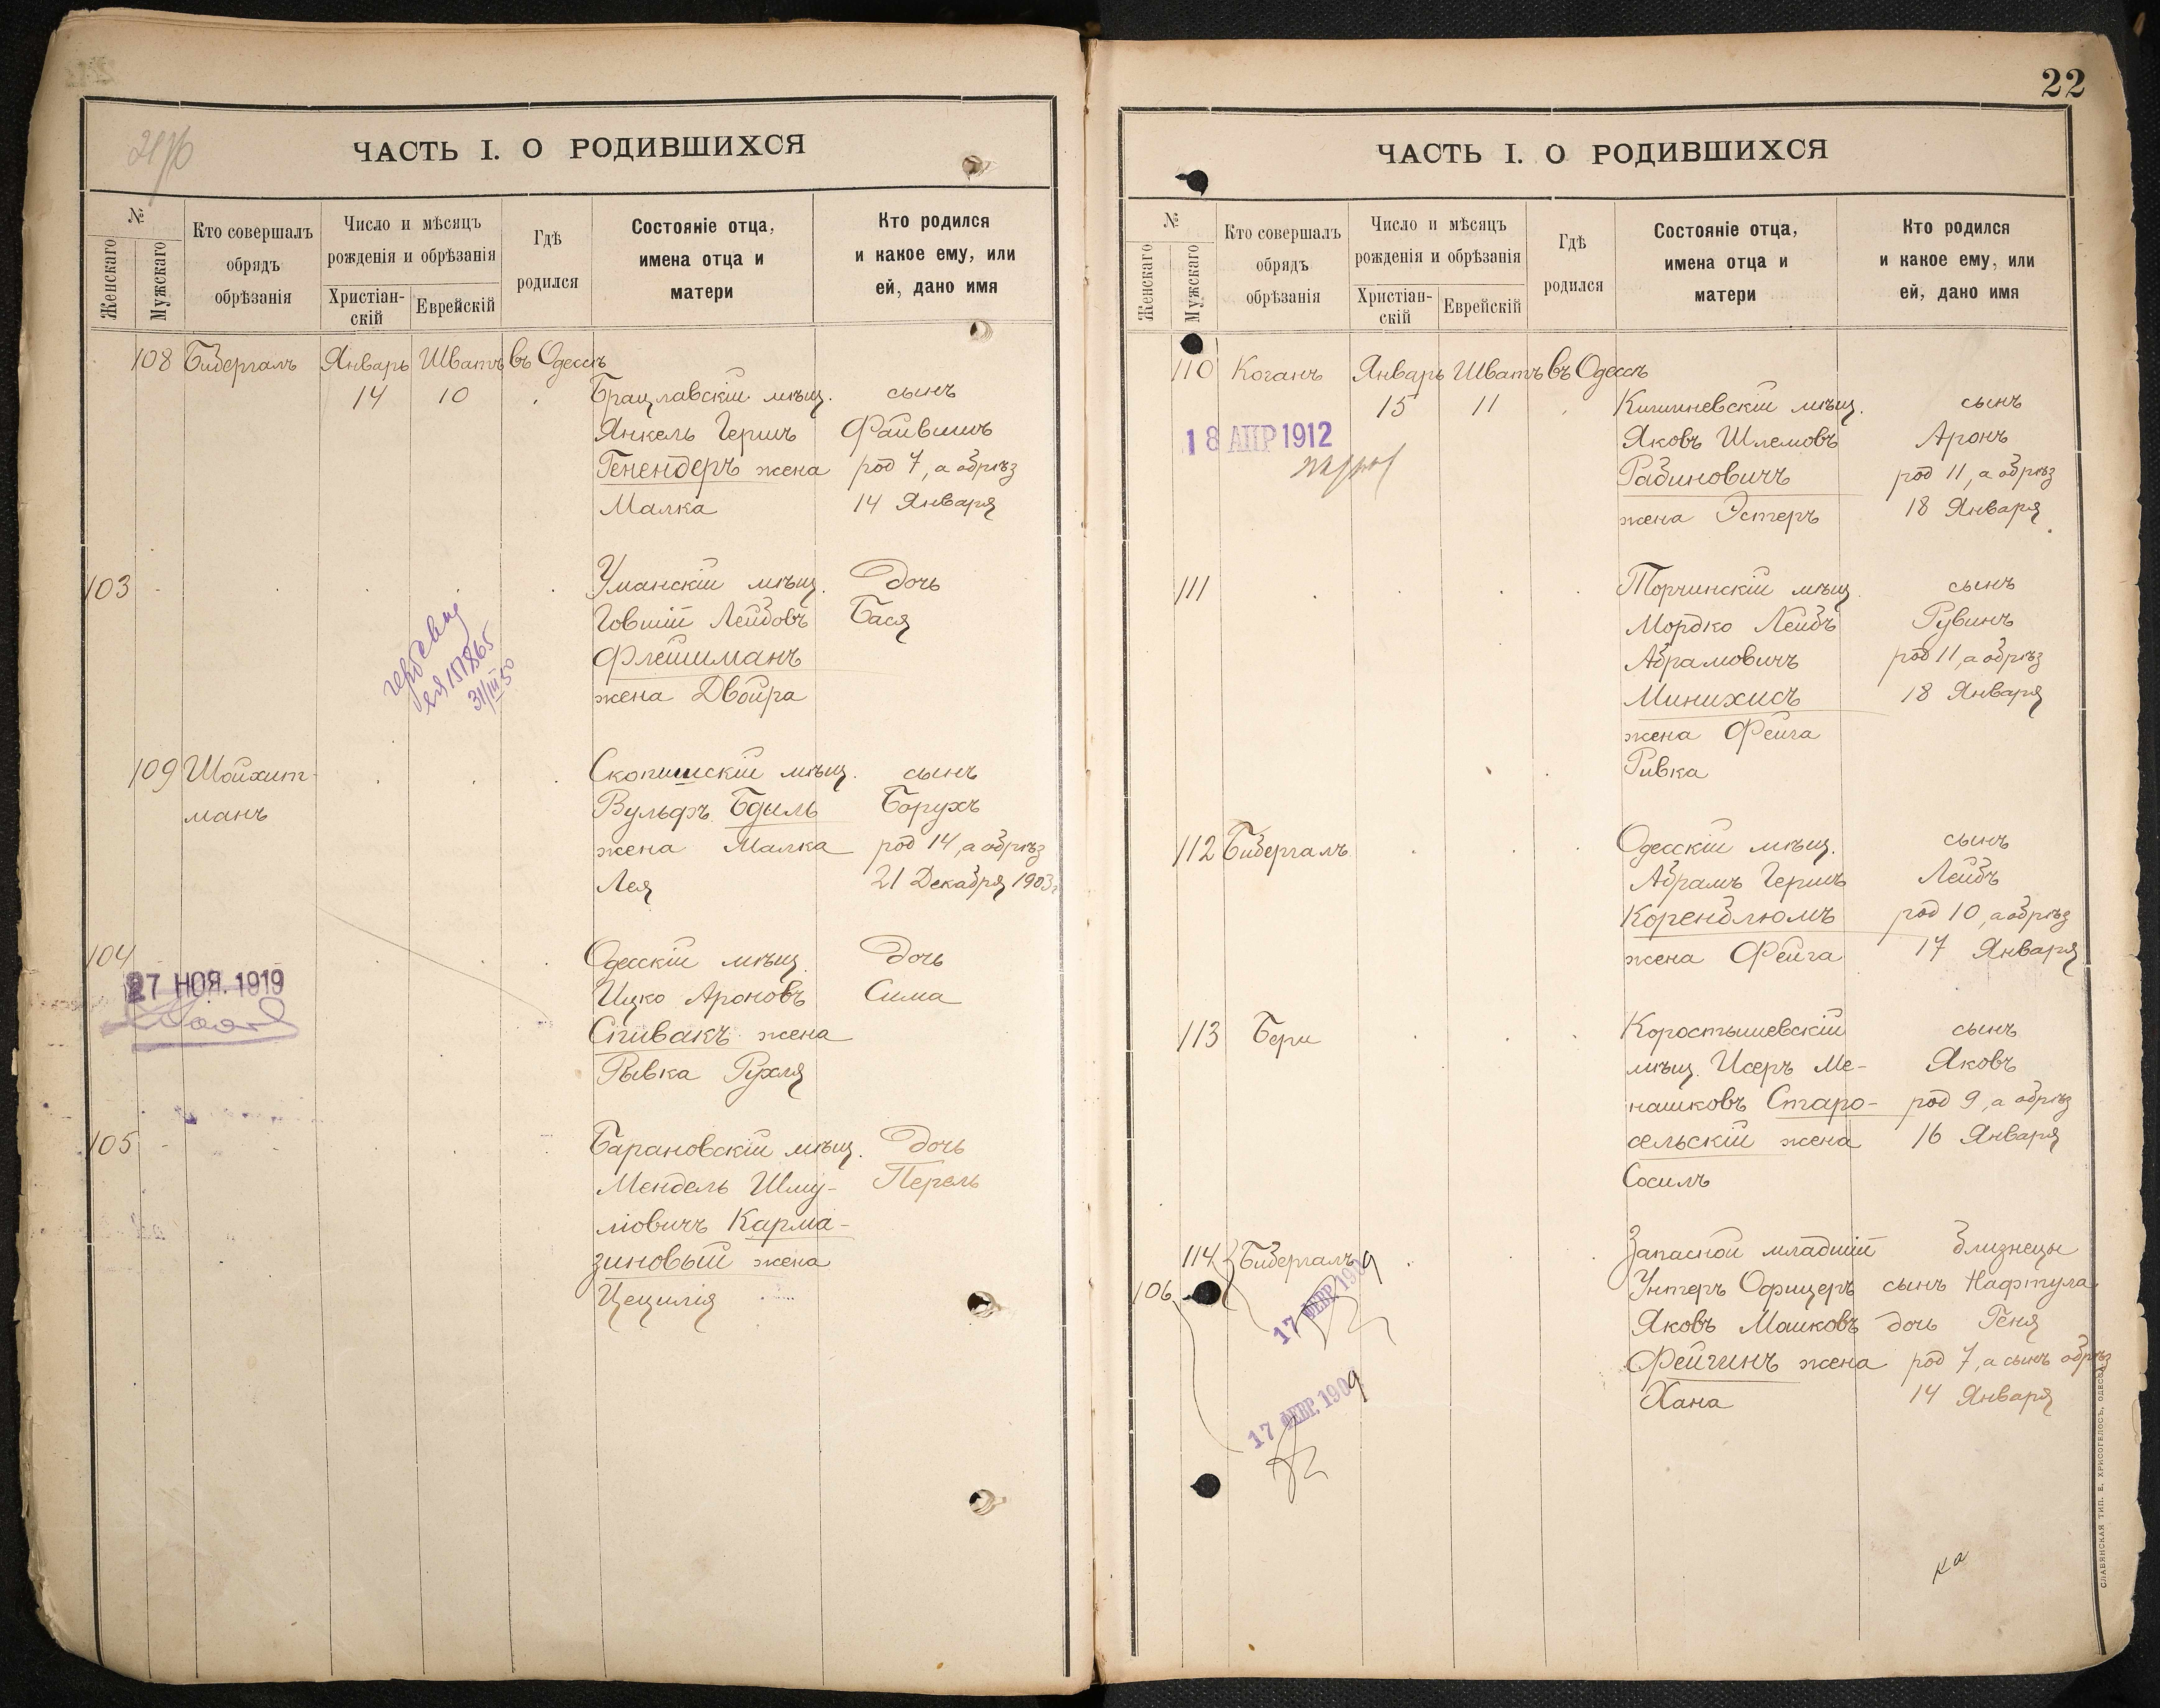 ЧАСТЬ I. О РОДИВШИХСЯ
№
Женскаго
Мужскаго
Кто совершалъ
обрядъ
обрѣзанія
Число и мѣсяцъ
рожденія и обрѣзанія
Христіан-
скій
Еврейскій
Гдѣ
родился
Состояніе отца,
имена отца и
матери
Кто родился
и какое ему, или
ей, дано имя
108 Бибергалъ Январь Шватъ въ Одессѣ
14 10 Брацлавскій мѣщ. сынъ
Янкель Гершъ Файвишъ
Генендеръ жена род 7, а обрѣз
Малка 14 Января
103 Уманскій мѣщ. дочь
Говшій Лейбовъ Бася
Флейшманъ
жена Двойра
151865
31/III 50
109 Шойхит- Скопишскій мѣщ. сынъ
манъ Вульфъ Бдыль Борухъ
жена Малка род 14, а обрѣз
Лея 21 Декабря 1903 г
104 Одесскій мѣщ. дочь
27 НОЯ. 1919
Ицко Ароновъ Сима
Спивакъ жена
Рывка Рухля
105 Барановскій мѣщ. дочь
Мендель Шму- Перель
ліовичъ Карма-
зиновый жена
Цецилія
22
ЧАСТЬ I. О РОДИВШИХСЯ
№
Женскаго
Мужскаго
Кто совершалъ
обрядъ
обрѣзанія
Число и мѣсяцъ
рожденія и обрѣзанія
Христіан-
скій
Еврейскій
Гдѣ
родился
Состояніе отца,
имена отца и
матери
Кто родился
и какое ему, или
ей, дано имя
110 Коганъ Январь Шватъ въ Одессѣ
15 11 Кишиневскій мѣщ. сынъ
18 АПР 1912
Яковъ Шлемовъ Аронъ
Рабиновичъ род 11, а обрѣз
жена Эстеръ 18 Января
111 Торчинскій мѣщ. сынъ
Мордко Лейбъ Рувинъ
Абрамовичъ род 11, а обрѣз
Минихисъ 18 Января
жена Фейга
Ривка
112 Бибергалъ Одесскій мѣщ. сынъ
Абрамъ Гершъ Лейбъ
Коренблюмъ род 10, а обрѣз
жена Фейга 17 Января
113 Бери Коростышевскій сынъ
мѣщ. Исеръ Ме- Яковъ
нашковъ Старо- род 9, а обрѣз
сельскій жена 16 Января
Сосилъ
114 Бибергалъ Запасной младшій близнецы
106 Унтеръ Офицеръ сынъ Нафтула
17 ФЕВР. 1909
Яковъ Машковъ дочь Геня
Фейгинъ жена род 7, а сынъ обрѣз
Хана 14 Января
17 ФЕВР. 1909
ка
СЛАВЯНСКАЯ ТИП. Е. ХРИСОГЕЛОСЪ, ОДЕССА